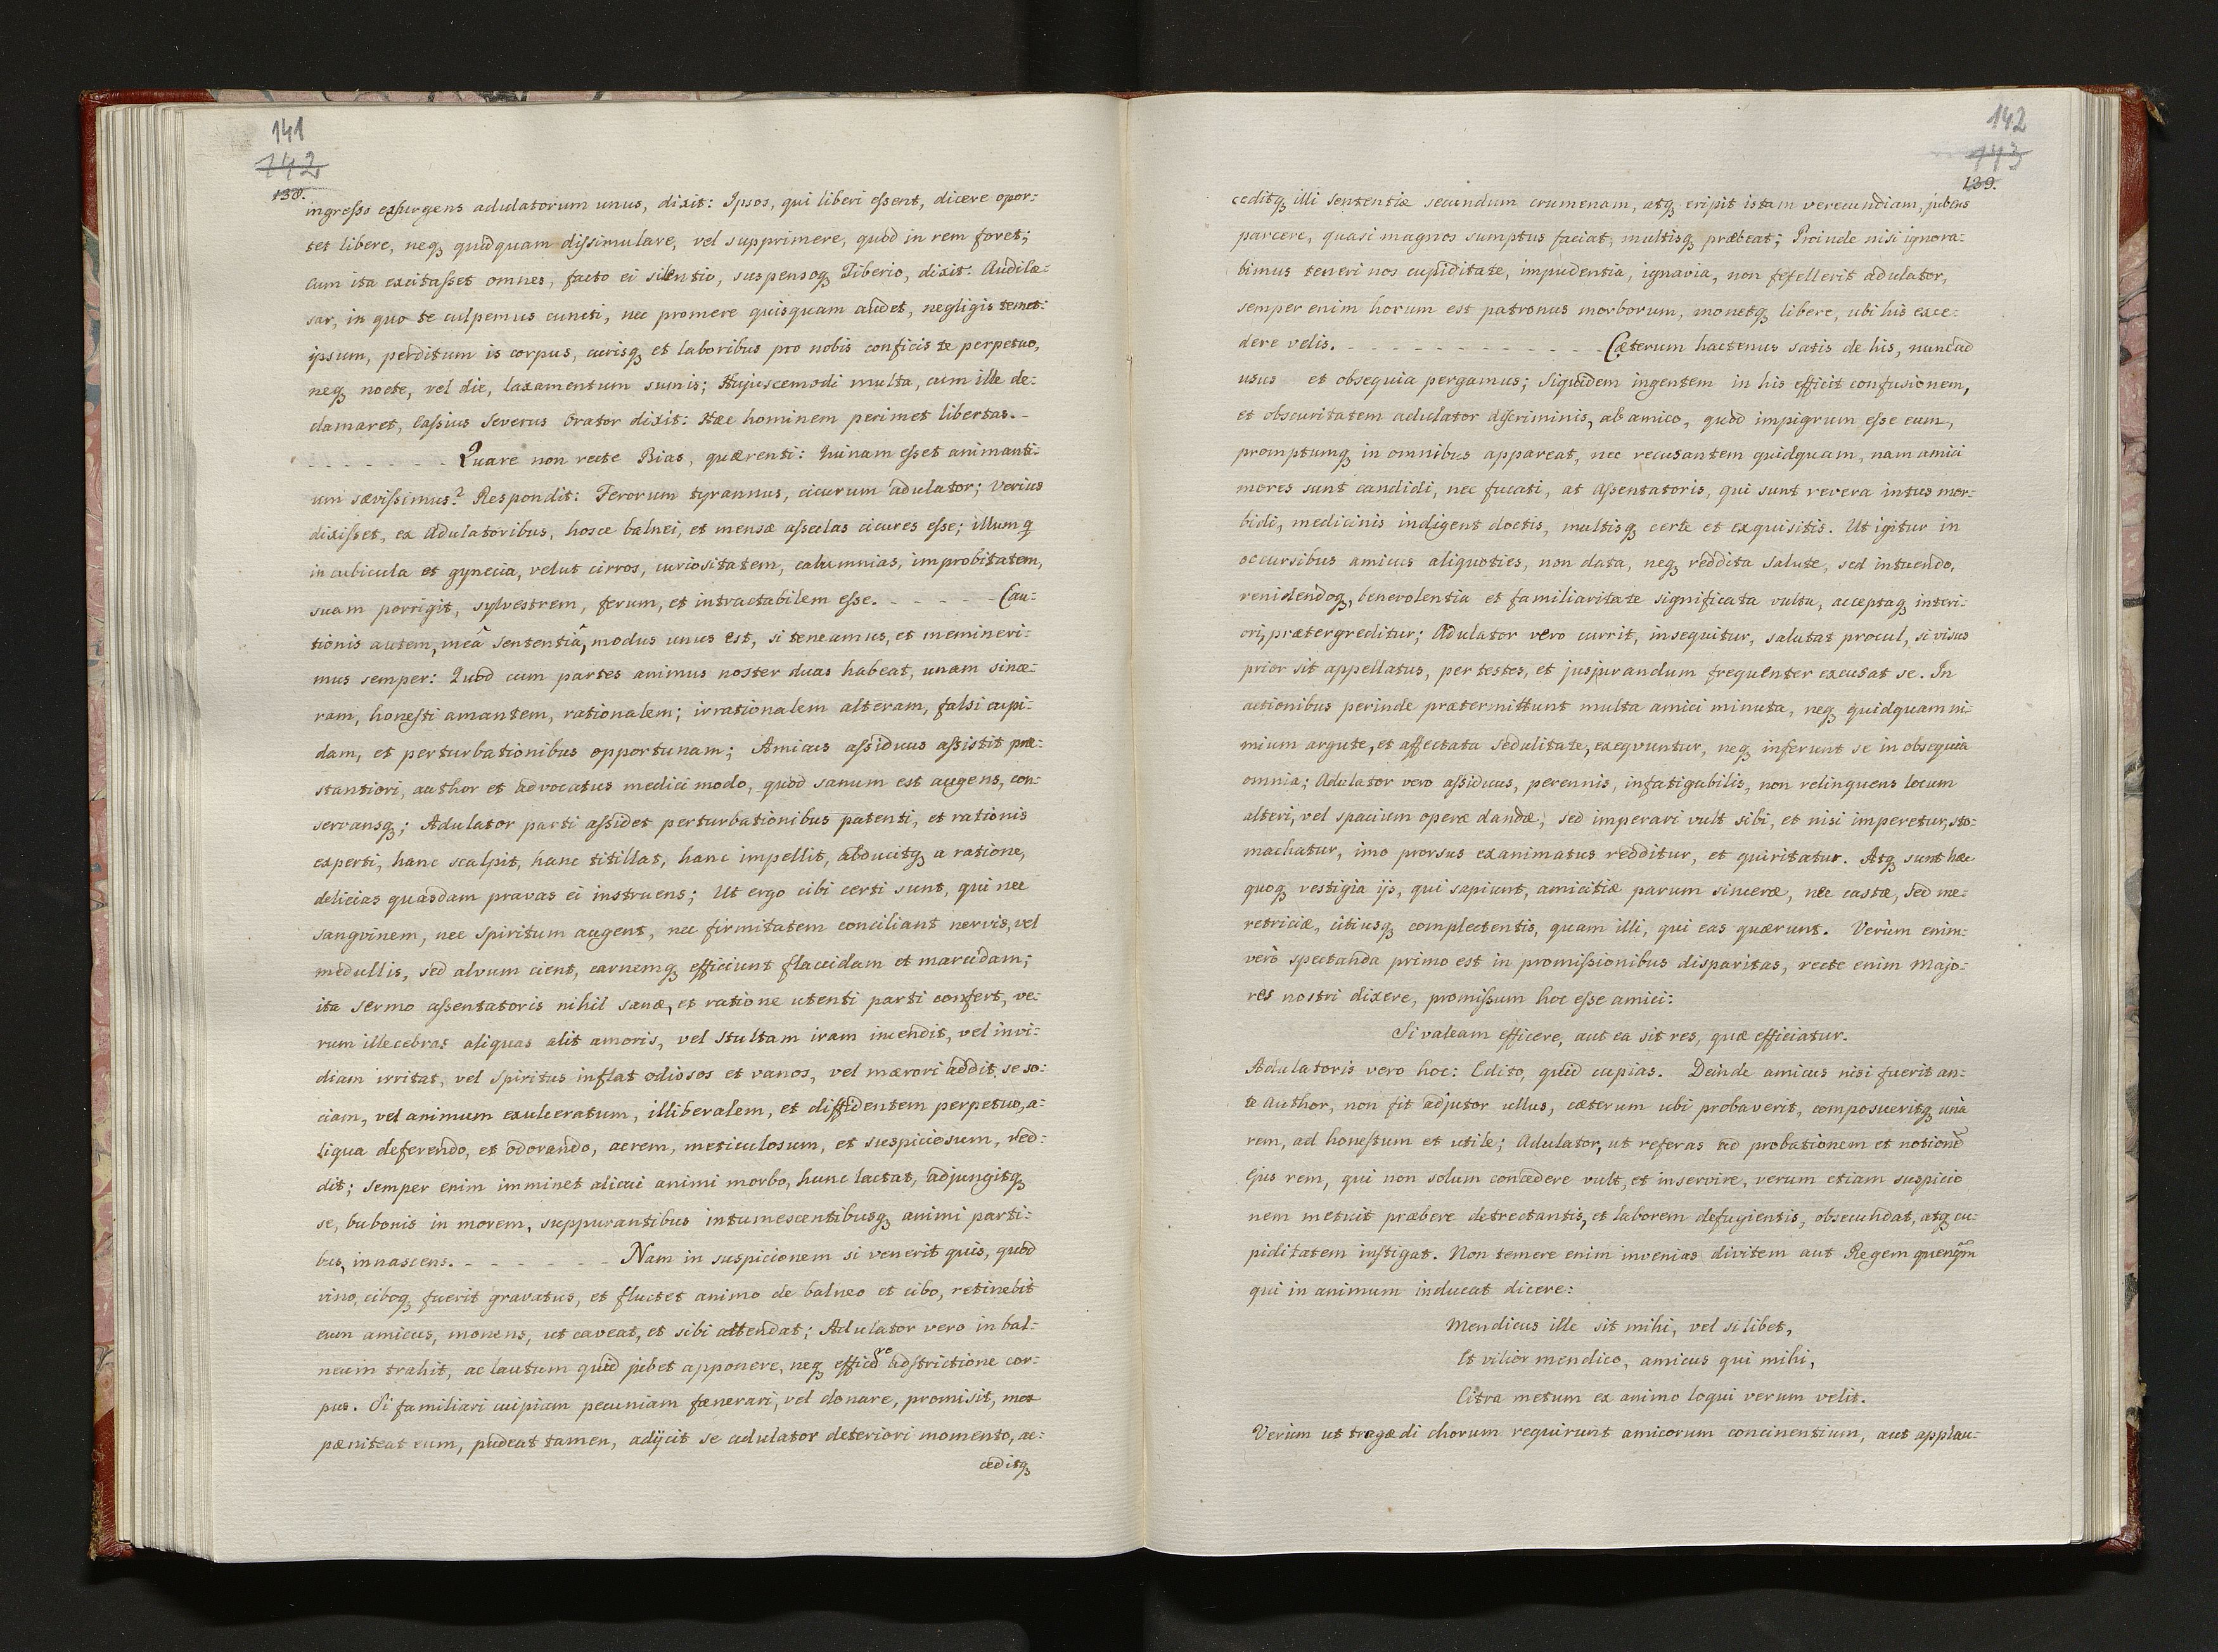 141
142
138.
ingresso exsurgens adulatorum unus, dixit: Ipsos, qui liberi essent, dicere opor:
tet libere, neq₃ quidquam dissimulare, vel supprimere, quod in rem foret;
Cum ita excitasset omnes, facto ei silentio, suspensoq₃ Tiberio, dixit: Audi Cæ:
sar, in quo te culpemus cuncti, nec promere quisquam audet, negligis temet:
ipsum, perditum is corpus, curisq₃ et laboribus pro nobis conficis te perpetuo,
neq₃ nocte, vel die, laxamentum sumis; Hujuscemodi multa, cum ille de:
clamaret, Cassius Severus Orator dixit: Hæc hominem perimet libertas. -
- - - - - - - Quare non recte Bias, quærenti: Quinam esset animanti:
um sævissimus? Respondit: Ferorum tyrannus, cicurum adulator; verius
dixisset, ex Adulatoribus, hosce balnei, et mensæ asseclas cicures esse; illum q
in cubicula et gynecia, velut cirros, curiositatem, calumnias, improbitatem,
suam porrigit, sylvestrem, ferum, et intractabilem esse. - - - - - Cau:
tionis autem, meâ sententiâ, modus unus est, si teneamus, et memineri:
mus semper: Quod cum partes animus noster duas habeat, unam since:
ram, honesti amantem, rationalem; irrationalem alteram, falsi cupi:
dam, et perturbationibus opportunam; Amicus assiduus assistit præ:
stantiori, author et advocatus medici modo, quod sanum est augens, con:
servansq₃; Adulator parti assidet perturbationibus patenti, et rationis
experti, hanc scalpit, hanc titillat, hanc impellit, abducitq₃ a ratione,
delicias quasdam pravas ei instruens; Ut ergo cibi certi sunt, qui nec
sangvinem, nec spiritum augent, nec firmitatem conciliant nervis, vel
medullis, sed alvum cient, carnemq₃ efficiunt flaccidam et marcidam;
ita sermo assentatoris nihil sanæ, et ratione utenti parti confert, ve:
rum illecebras aliquas alit amoris, vel stultam iram incendit, vel invi:
diam irritat, vel spiritus inflat odiosos et vanos, vel mærori addit se so:
ciam, vel animum exulceratum, illiberalem, et diffidentem perpetuo, a:
liqua deferendo, et odorando, acrem, meticulosum, et suspiciosum, red:
dit; semper enim imminet alicui animi morbo, hunc lactat, adjungitq₃
se, bubonis in morem, suppurantibus intumescentibusq₃ animi parti:
bus, innascens. - - - - - - - Nam in suspicionem si venerit quis, quod
vino, ciboq₃ fuerit gravatus, et fluctet animo de balneo et cibo, retinebit
eum amicus, monens, ut caveat, et sibi attendat; Adulator vero in bal:
neum trahit, ac lautum quid jubet apponere, neq₃ efficere adstrictione cor:
pus. Si familiari cuipiam pecuniam fænerari, vel donare, promisit, mox
pæniteat eum, pudeat tamen, adijcit se adulator deteriori momento, ac:
ceditq₃
142
143
139.
ceditq₃ illi sententiæ secundum crumenam, atq₃ eripit istam verecundiam, jubens
parcere, quasi magnos sumptus faciat, multisq₃ præbeat; Proinde nisi ignora:
bimus teneri nos cupiditate, impudentia, ignavia, non fefellerit adulator,
semper enim horum est patronus morborum, monetq₃ libere, ubi his exce:
dere velis. - - - - - - - - - - - - - Cæterum hactenus satis de his, nunc ad
usus et obsequia pergamus; Siquidem ingentem in his efficit confusionem,
et obscuritatem adulator discriminis, ab amico, quod impigrum esse eum,
promptumq₃ in omnibus appareat, nec recusantem quidquam, nam amici
mores sunt candidi, nec fucati, at Assentatoris, qui sunt revera intus mor:
bidi, medicinis indigent doctis, multisq₃ certe et exquisitis. Ut igitur in
occursibus amicus aliquoties, non data, neq₃ reddita salute, sed intuendo,
renidendoq₃, benevolentia et familiaritate significata vultu, acceptaq₃ interi:
ori, prætergreditur; Adulator vero currit, insequitur, salutat procul, si visus
prior sit appellatus, per testes, et jusjurandum frequenter excusat se. In
actionibus perinde prætermittunt multa amici minuta, neq₃ quidquam ni:
mium argute, et affectata sedulitate, exeqvuntur, neq₃ inferunt se in obsequia
omnia; Adulator vero assiduus, perennis, infatigabilis, non relinquens locum
alteri, vel spacium operæ dandæ, sed imperari vult sibi, et nisi imperetur, sto:
machatur, imo prorsus exanimatus redditur, et quiritatur. Atq₃ sunt hæc
quoq₃ vestigia ijs, qui sapiunt, amicitiæ parum sinceræ, nec castæ, sed me:
retriciæ, citiusq₃ complectentis, quam illi, qui eas quærunt. Verùm enim:
verò spectanda primo est in promissionibus disparitas, recte enim Majo:
res nostri dixere, promissum hoc esse amici:
Si valeam efficere, aut ea sit res, quæ efficiatur.
Adulatoris vero hoc: Edito, quid cupias. Deinde amicus nisi fuerit an:
te author, non fit adjutor ullus, cæterum ubi probaverit, composueritq₃ unà
rem, ad honestum et utile; Adulator, ut referas ad probationem et notionē
Ejus rem, qui non solum concedere vult, et inservire, verum etiam suspicio
nem metuit præbere detrectantis, et laborem defugientis, obsecundat, atq₃ cu:
piditatem instigat. Non temere enim invenias divitem aut Regem quenq̃m
qui in animum inducat dicere:
Mendicus ille sit mihi, vel si libet,
Et vilior mendico, amicus qui mihi,
Citra metum ex animo loqui verum velit.
Verum ut tragædi chorum requirunt amicorum concinentium, aut applau: